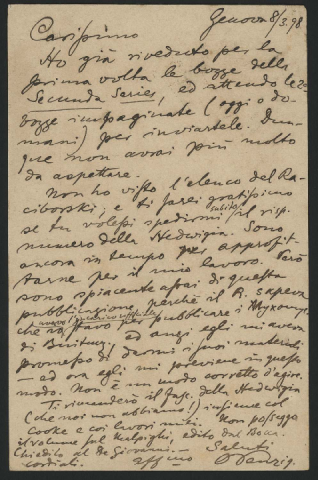 Genova 8/3.98.
Carissimo
Ho già riveduto per la
prima volta le bozze della
Secunda Series, ed attendo le 2e
bozze impaginate (oggi o do-
mani) per inviartele. Dun-
que non avrai più molto
da aspettare.
Non ho visto l'elenco del Ra-
ciborski, e ti farei gratissimo
se tu volessi spedirmi subito il risp.
numero della Hedwigia. Sono
ancora in tempo per approfit-
tarne per il mio lavoro. Però
sono spiacente assai di questa
pubblicazione, perchè il R. sapeva
che volevo pubblicare i Myxomyc.
di Buitenz., ed anzi egli mi aveva
promesso di darmi i suoi materiali
— ed ora egli mi previene in questo
modo. Non è un modo corretto d'agire.
Ti rimanderò il fasc. della Hedwigia
(che noi non abbiamo!) insieme col
Cooke e coi lavori miei. Non posseggo
il volume sul Malpighi, edito dal
Chiedilo al De Giovanni. Saluti
cordiali. aff.mo OPenzig.